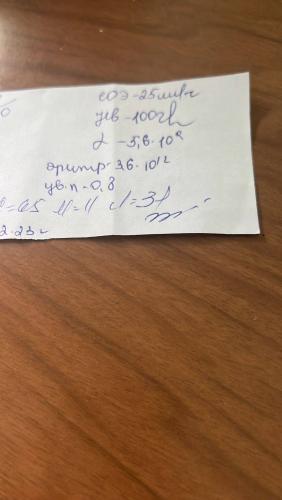 0
СОЭ - 25 мм/ч
Hb - 100 г/л
L - 5,6·10⁹
эритр. 3,6·10¹²
цв.п - 0,8
=65 М=4 Л=31
2.23 г